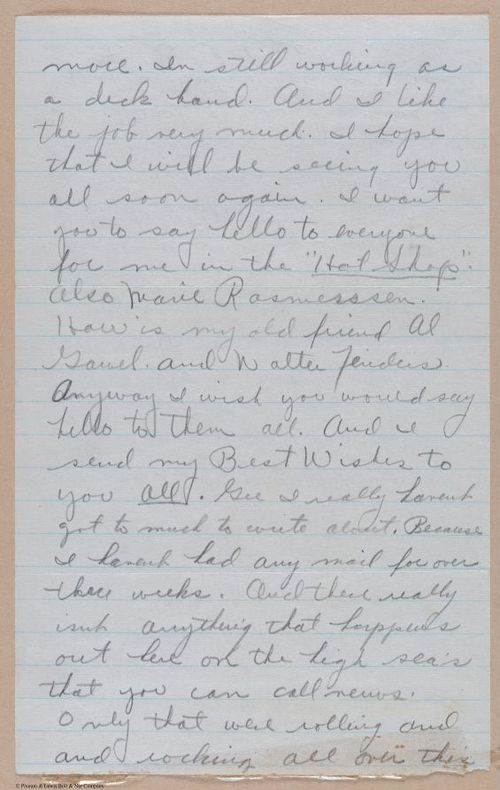 more. Im still working as
a deck hand. And I like
the job very much. I hope
that I will be seeing you
all soon again. I want
you to say hello to everyone
for me in the "Hot Shop".
also Marie Rasmesssen.
How is my old friend Al
Gawel. and Walter Jenders.
Anyway I wish you would say
hello to them all. And I
send my Best Wishes to
you all. Gee I really havent
got to much to write about. Because
I havent had any mail for over
three weeks. And there really
isnt anything that happens
out here on the high sea's
that you can call news.
Only that were rolling and
and rocking all over this
© Pioneer & Lamson Bolt & Nut Company